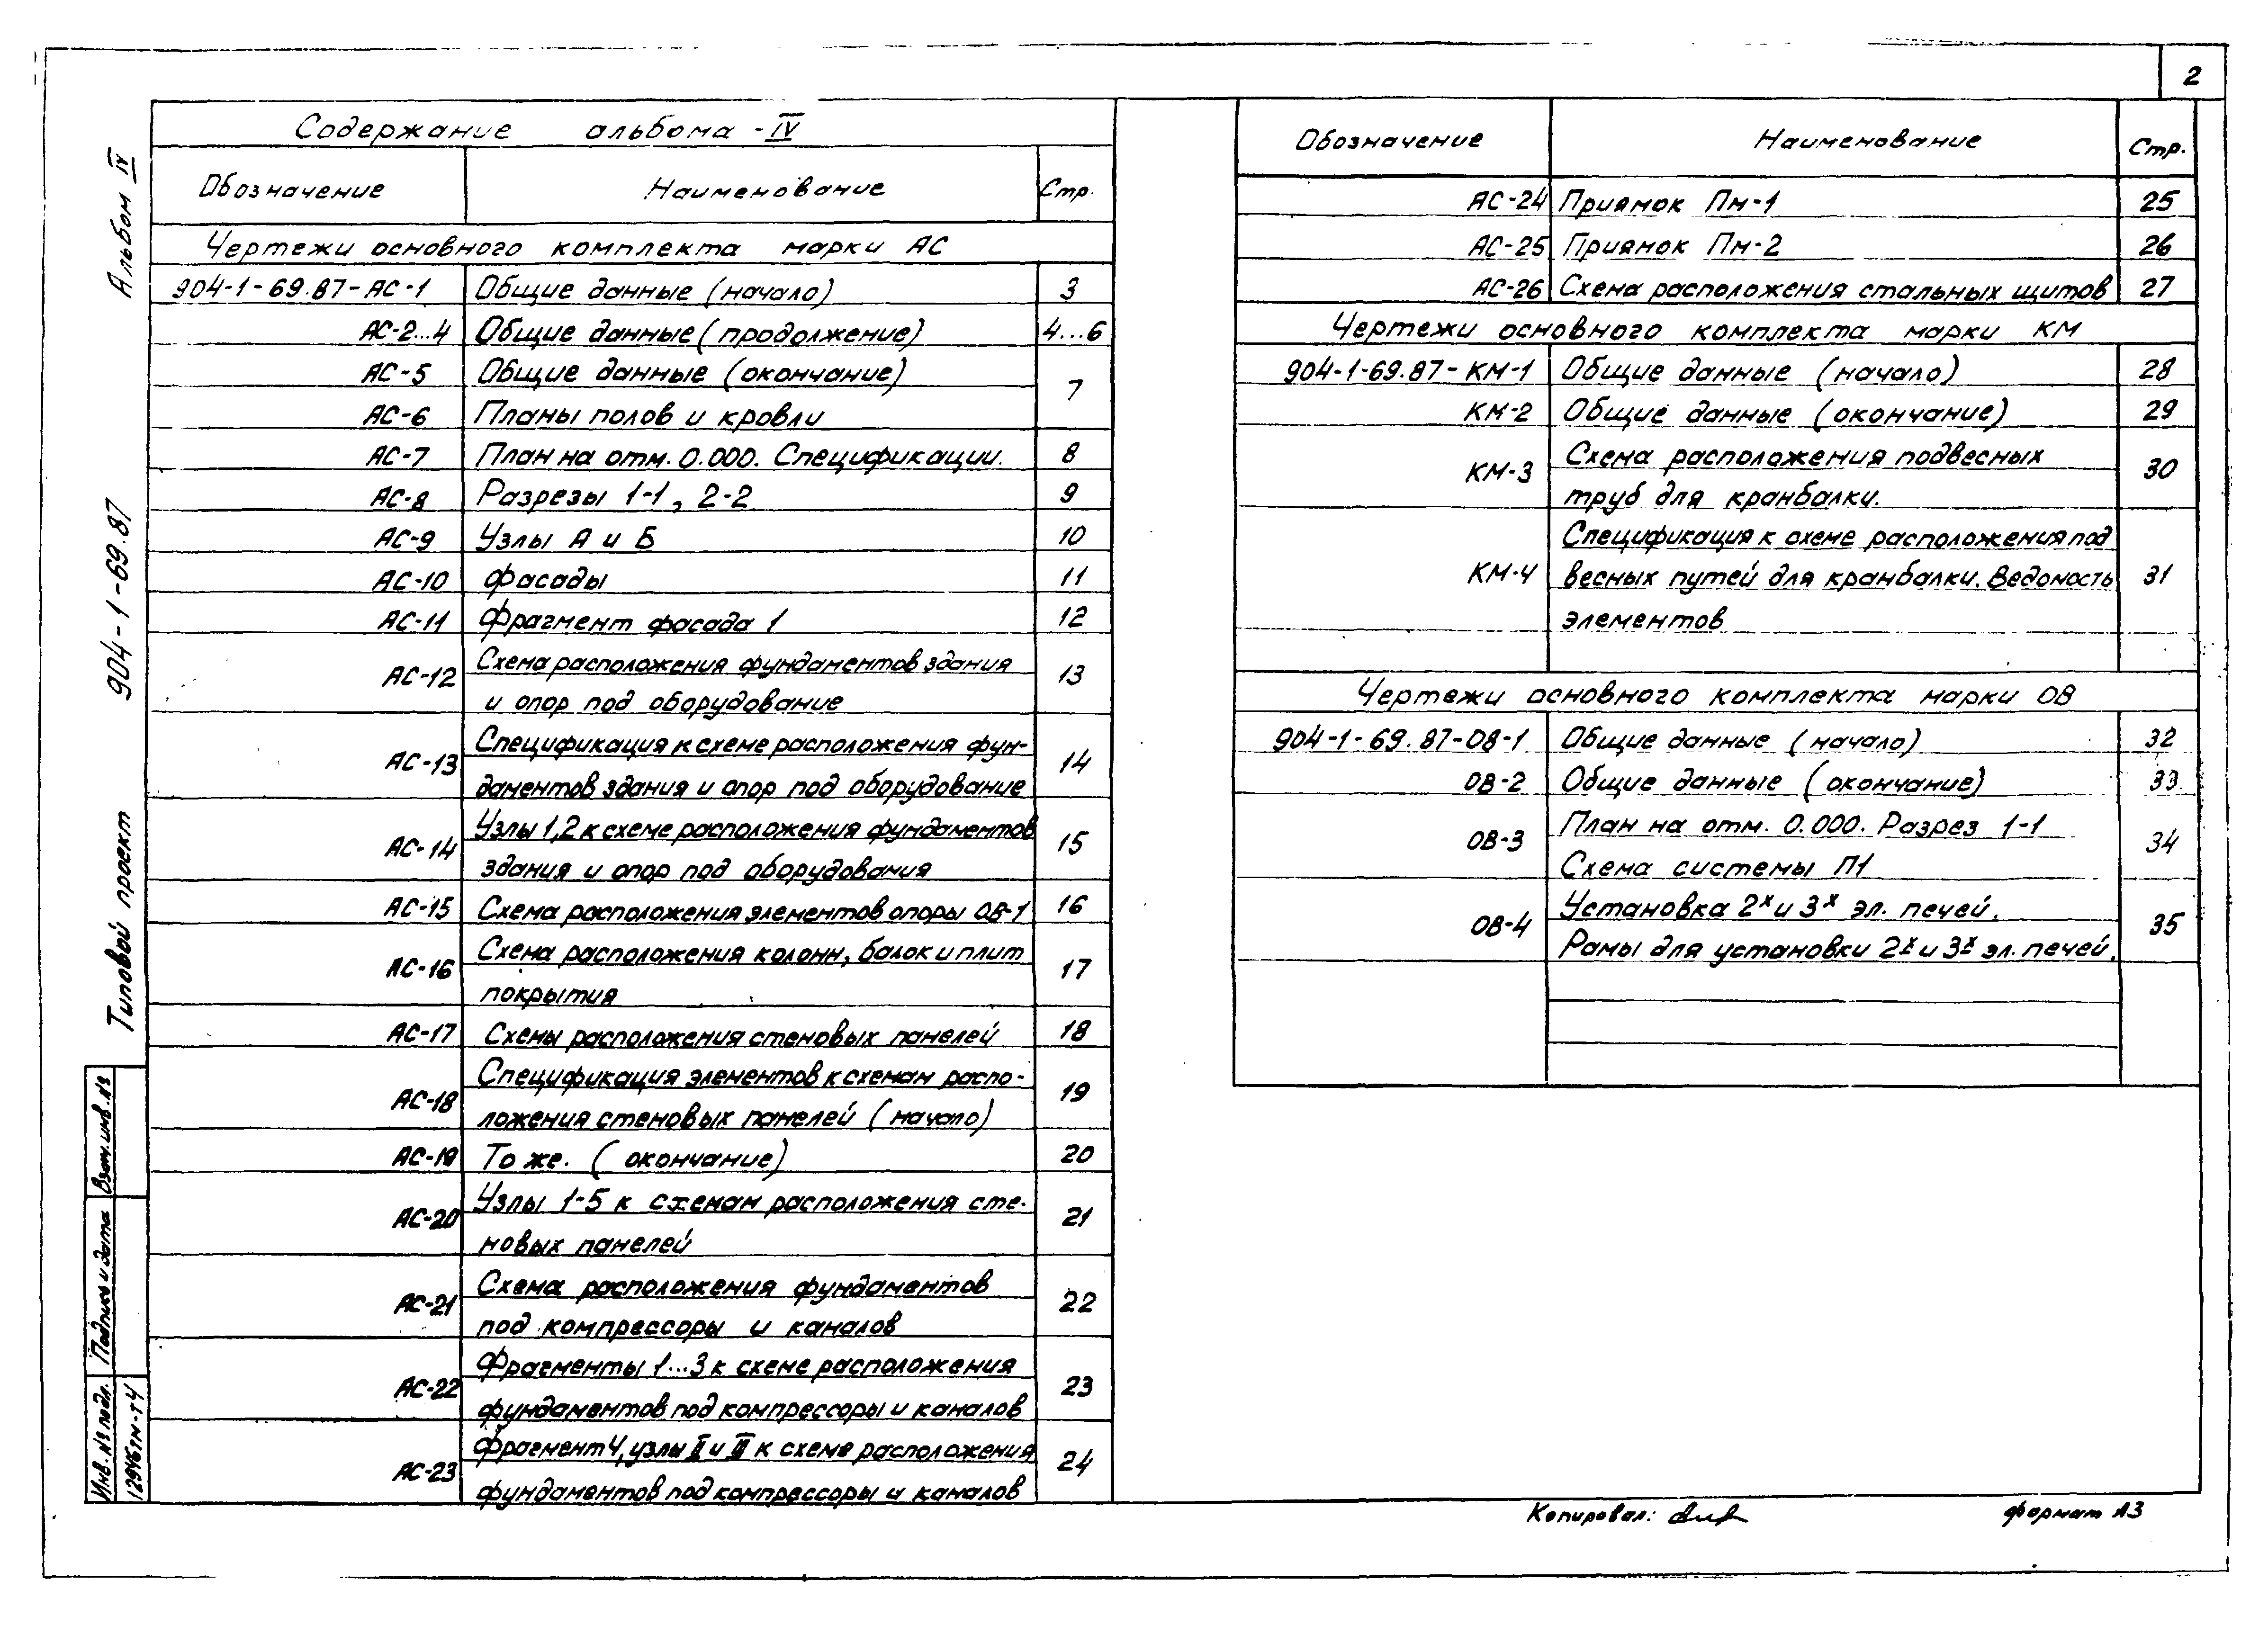 2
Содержание альбома - IV
Обозначение Наименование Стр.
Чертежи основного комплекта марки АС
904-1-69.87-АС-1 Общие данные (начало) 3
АС-2...4 Общие данные (продолжение) 4...6
АС-5 Общие данные (окончание) 7
АС-6 Планы полов и кровли
АС-7 План на отм. 0.000. Спецификации. 8
АС-8 Разрезы 1-1, 2-2 9
АС-9 Узлы А и Б 10
АС-10 Фасады 11
АС-11 Фрагмент фасада 1 12
АС-12 Схема расположения фундаментов здания 13
и опор под оборудование
АС-13 Спецификация к схеме расположения фун- 14
даментов здания и опор под оборудование
АС-14 Узлы 1,2 к схеме расположения фундаментов 15
здания и опор под оборудования
АС-15 Схема расположения элементов опоры ОВ-1 16
АС-16 Схема расположения колонн, балок и плит 17
покрытия
АС-17 Схемы расположения стеновых панелей 18
АС-18 Спецификация элементов к схемам распо- 19
ложения стеновых панелей (начало)
АС-19 То же. (окончание) 20
АС-20 Узлы 1-5 к схемам расположения сте- 21
новых панелей
АС-21 Схема расположения фундаментов 22
под компрессоры и каналов
АС-22 Фрагменты 1...3 к схеме расположения 23
фундаментов под компрессоры и каналов
АС-23 Фрагмент 4, узлы II и III к схеме расположения 24
фундаментов под компрессоры и каналов
Обозначение Наименование Стр.
АС-24 Приямок Пм-1 25
АС-25 Приямок Пм-2 26
АС-26 Схема расположения стальных щитов 27
Чертежи основного комплекта марки КМ
904-1-69.87-КМ-1 Общие данные (начало) 28
КМ-2 Общие данные (окончание) 29
КМ-3 Схема расположения подвесных 30
труб для кранбалки.
КМ-4 Спецификация к схеме расположения под 31
весных путей для кранбалки. Ведомость
элементов
Чертежи основного комплекта марки ОВ
904-1-69.87-ОВ-1 Общие данные (начало) 32
ОВ-2 Общие данные (окончание) 33
ОВ-3 План на отм. 0.000. Разрез 1-1 34
Схема системы П1
ОВ-4 Установка 2х и 3х эл. печей. 35
Рамы для установки 2х и 3х эл. печей.
Альбом IV
904-1-69.87
Типовой проект
Взам. инв. №
Подпись и дата
Инв. № подл.
12946тм-т4
Копировал:
формат А3